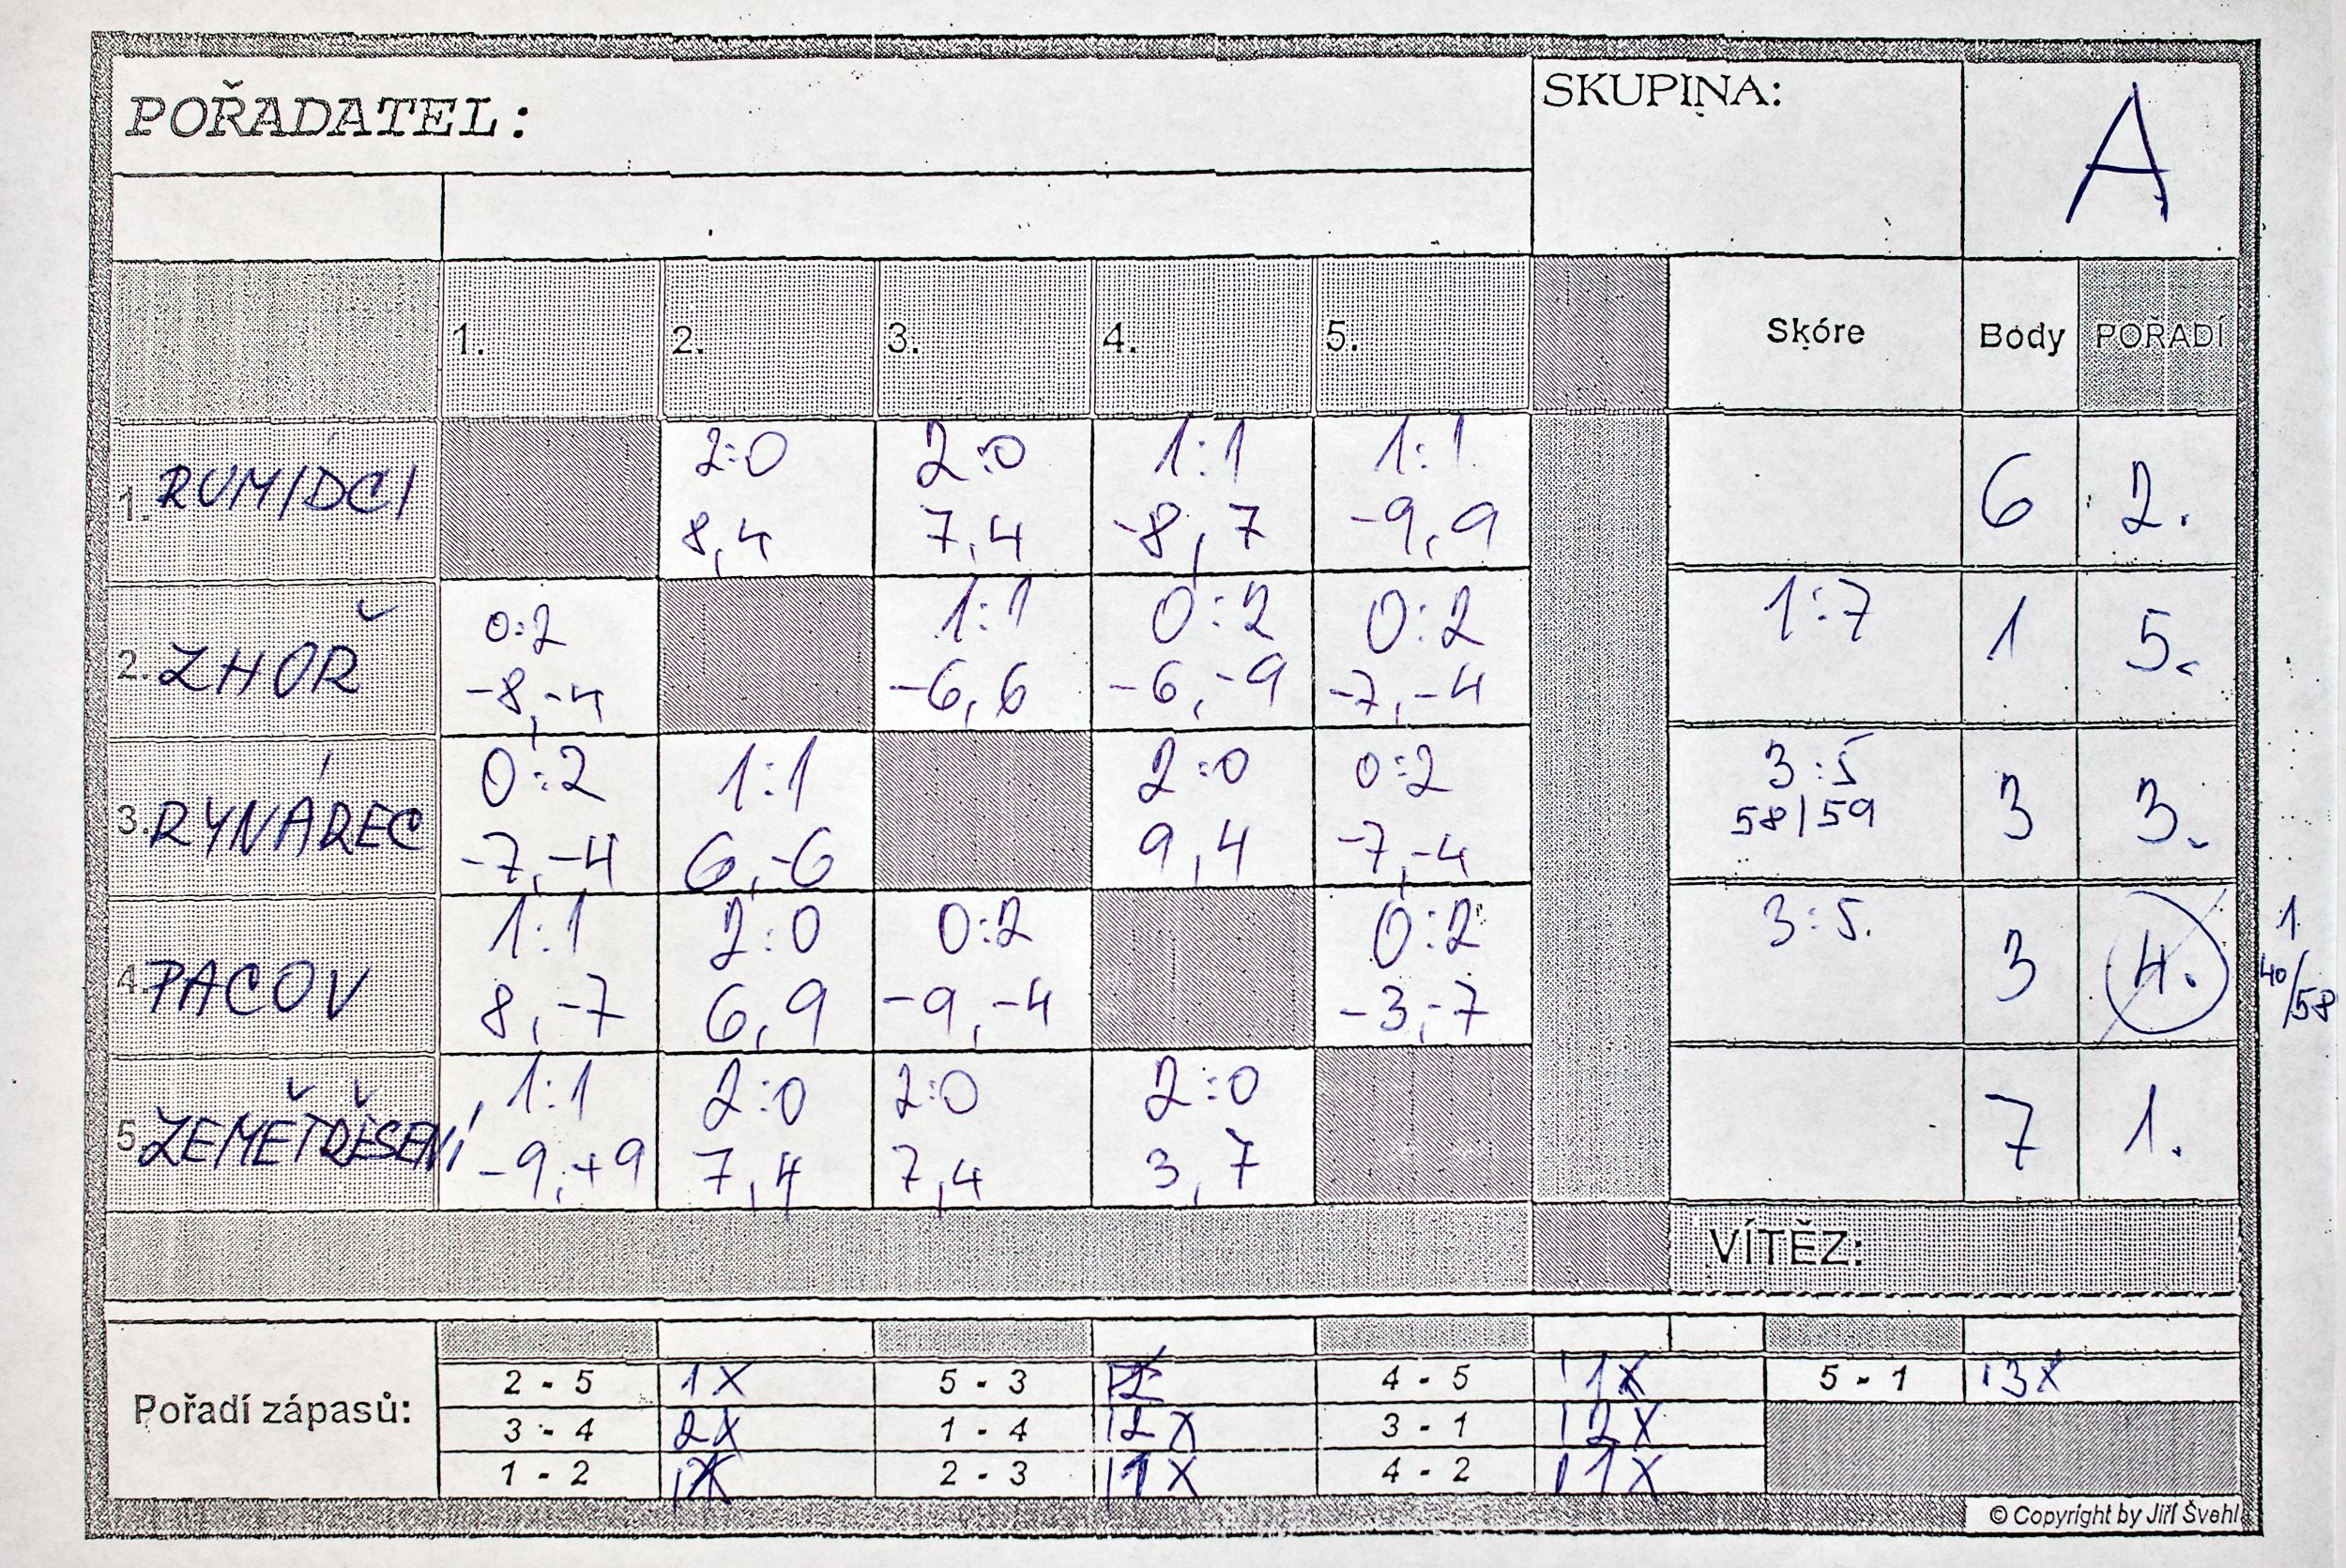 POŘADATEL:
SKUPINA:
A
1. 2. 3. 4. 5. Skóre Body POŘADÍ
1. RUMÍDCI 2:0 2:0 1:1 1:1 6 2.
8,4 7,4 -8,7 -9,9
2. ZHOŘ 0:2 1:1 0:2 0:2 1:7 1 5.
-8,-4 -6,6 -6,-9 -7,-4
3. RYNÁREC 0:2 1:1 2:0 0:2 3:5 3 3.
-7,-4 6,-6 9,4 -7,-4 58/59
4. PACOV 1:1 2:0 0:2 0:2 3:5. 3 4. 1.
8,-7 6,9 -9,-4 -3,-7 40/58
5. ZEMĚTŘESENÍ 1:1 2:0 2:0 2:0 7 1.
-9,+9 7,4 7,4 3,7
VÍTĚZ:
Pořadí zápasů:
2 - 5 1X 5 - 3 4 - 5 1X 5 - 1 3X
3 - 4 2X 1 - 4 2X 3 - 1 2X
1 - 2 2 - 3 1X 4 - 2 1X
© Copyright by Jiří Švehl